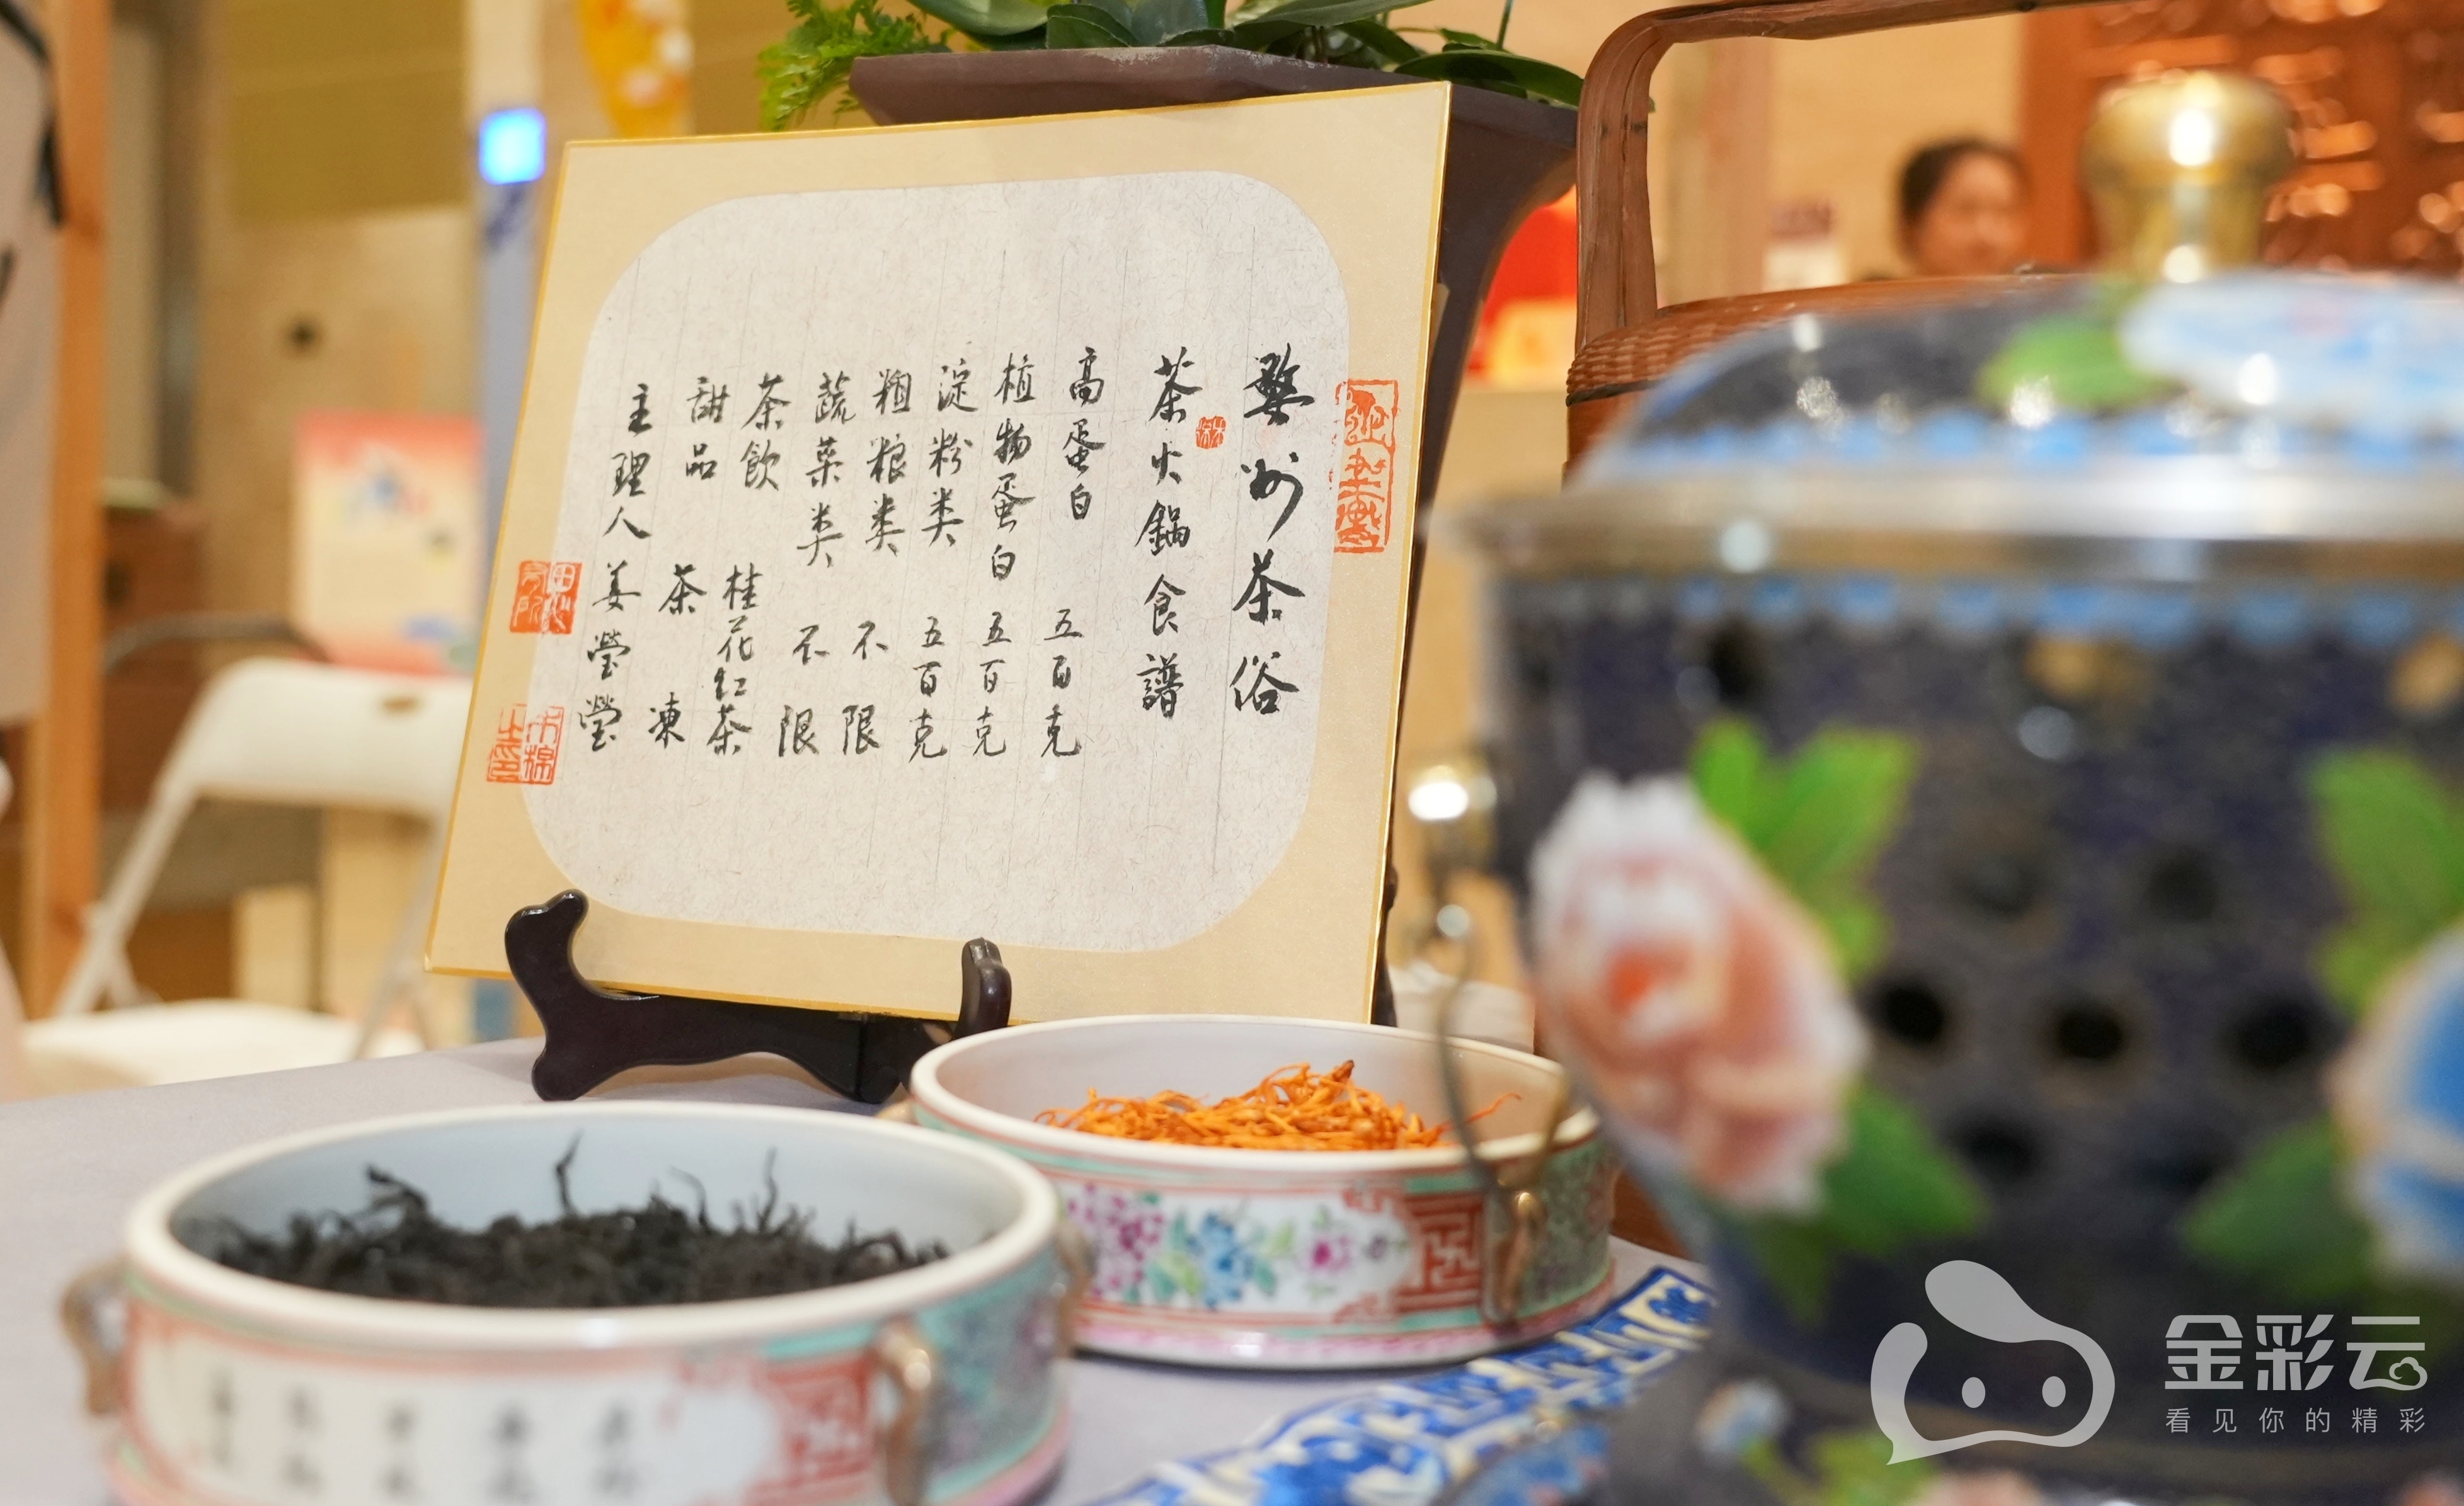 婺州茶俗
茶火鍋食譜
高蛋白 五百克
植物蛋白 五百克
淀粉类 五百克
粗粮类 不限
蔬菜类 不限
茶飲 桂花红茶
甜品 茶凍
主理人 姜瑩瑩
金彩云
看见你的精彩